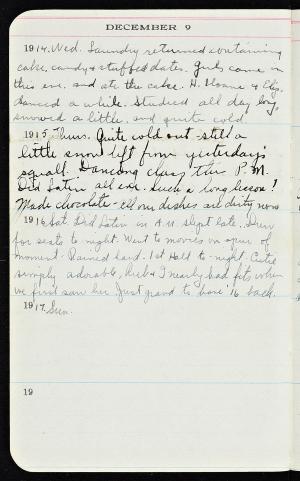 DECEMBER 9
1914. Wed. Laundry returned containing
cake, candy & stuffed dates. Girls came in
this eve. and ate the cake. H. & Eliz.
danced a while. Studied all day long,
snowed a little, and quite cold.
1915 Thurs. Quite cold out still a
little snow left from yesterday's
squall. Dancing class this P.M.
Did Latin all eve. Such a long lesson!
Made chocolate. All our dishes are dirty now
1916 Sat. Did Latin in A.M. slept late. Drew
for seats to night. Went to movies on spur of
moment. Rained hard. 1st Hold to-night. Cutie
simply adorable, & I nearly had fits when
we first saw her. Just grand to have '16 back.
1917. Sun.
19